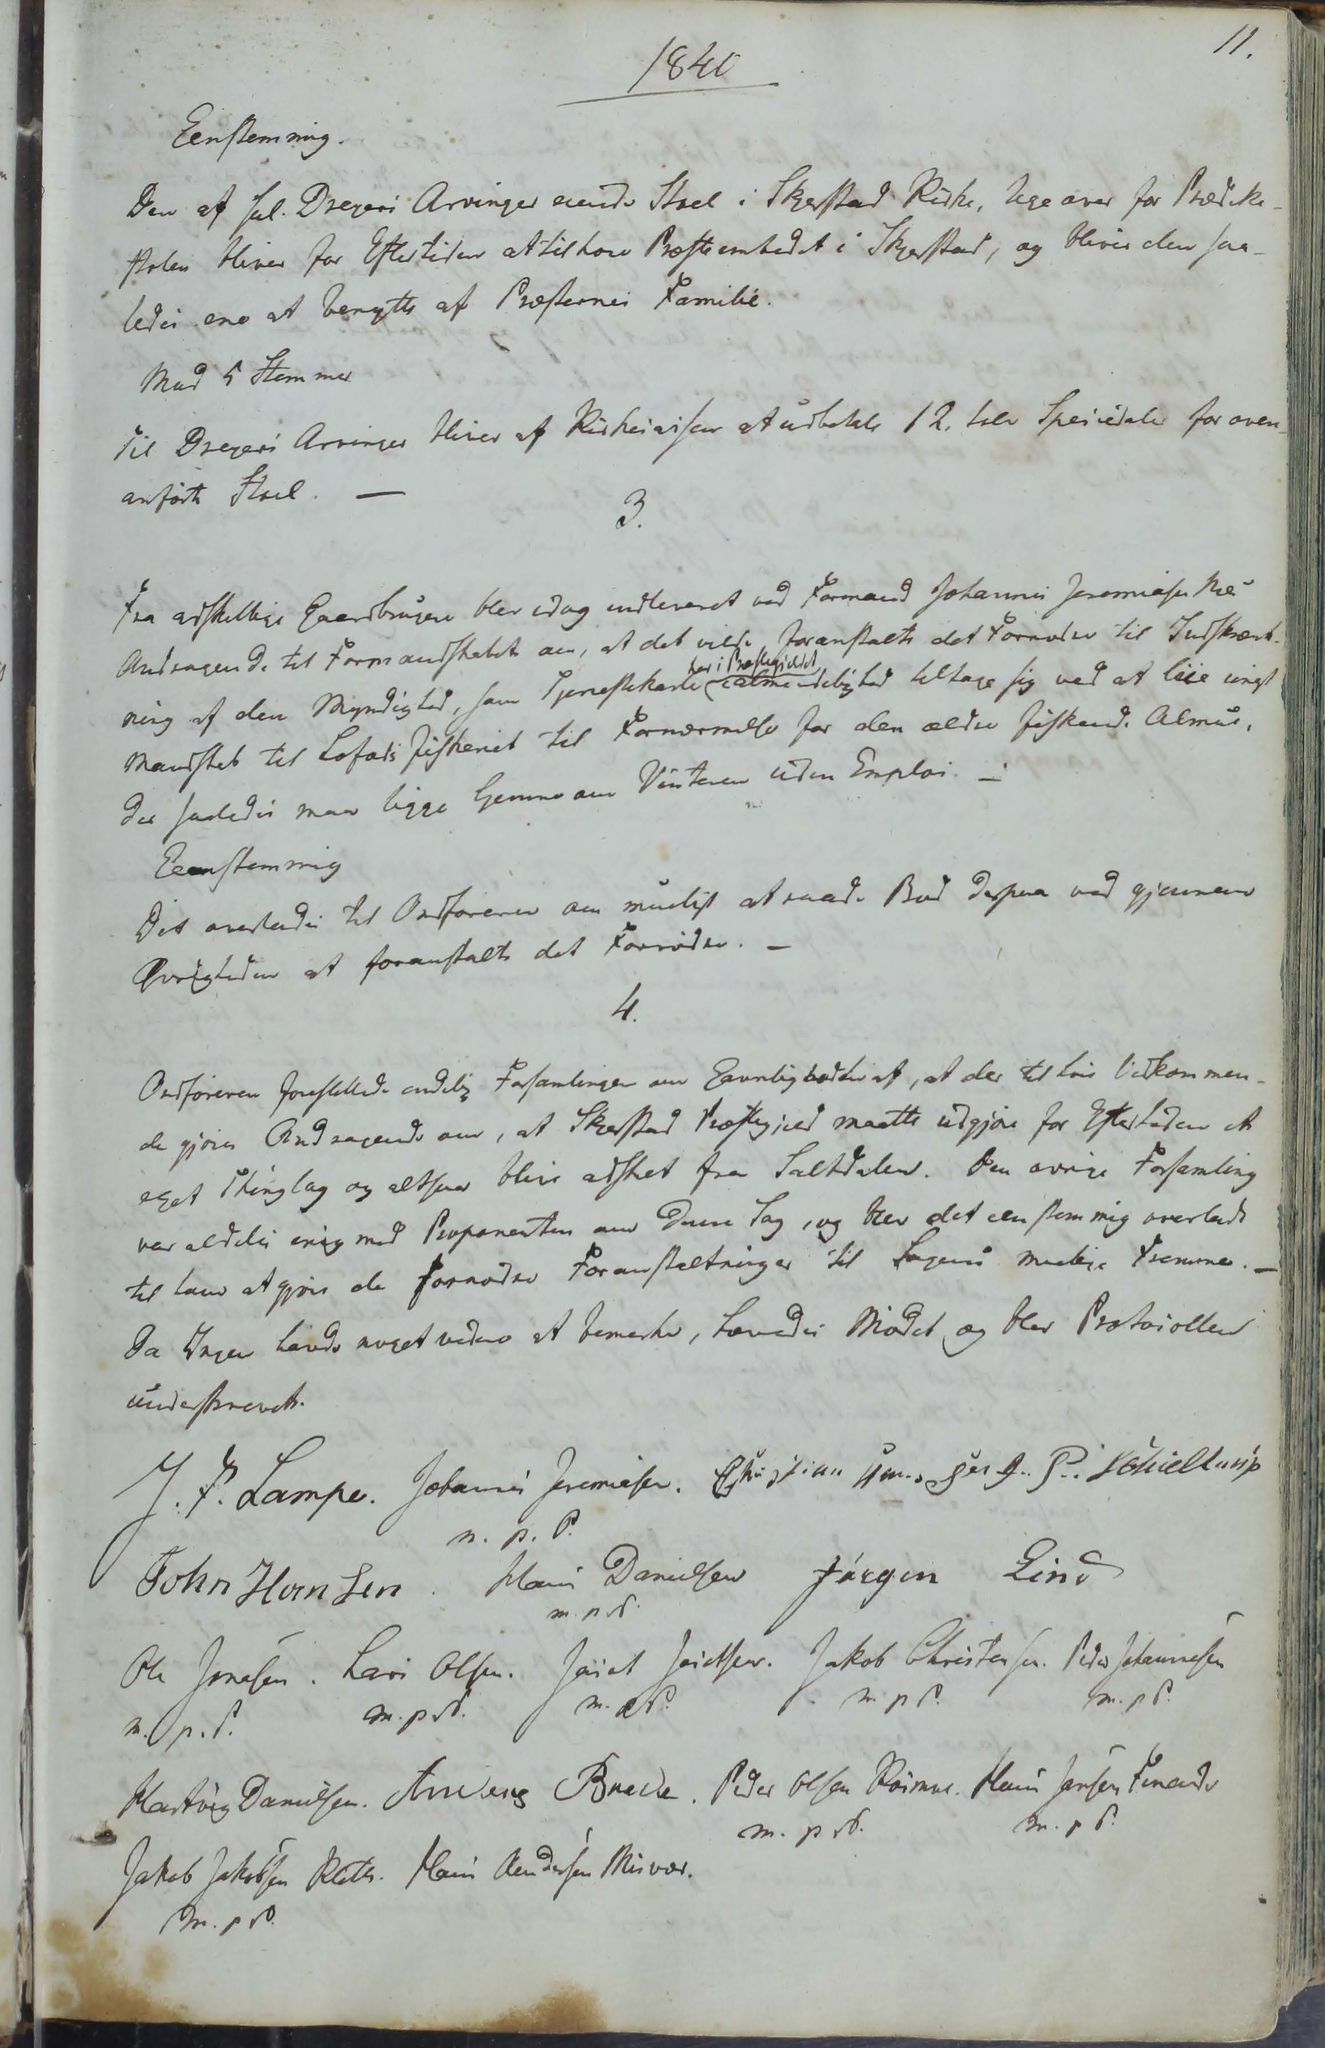 11.
1840
Eenstemmig.
Den af sal. Dreyers Arvinger eiende Stoel i Skjerstad Kirke, lige over for Prædike-
stolen bliver for Eftertiden at tilhøre Præsteembedet i Skjerstad, og bliver den saa-
ledes ene at benytte af Præsternes Familie.
Med 5 Stemmer
Til Dreyers Arvinger bliver af Kirkecassen at udbetale 12. tolv Speciedaler for oven-
anførte Stoel. —
3.
Fra adskillige Gaardbrugere blev idag indleveret ved Formand Johannes Jeremiasen
Andragende til Formandskabet om, at det vilde foranstalte det Fornødne til Indskrænk-
her i Præstegieldet
ning af den Myndighed, som Tjenestekarle i almindelighed tiltage sig ved at leie ungt
Mandskab til Lofodsfiskeriet til Fornærmelse for den ældre fiskende Almue,
der saaledes maa ligge hjemme om Vinteren uden Emploi. —
Eenstemmig
Det overlades til Ordføreren om mueligt at raade Bod derpaa ved gjennem
Øvrigheden at foranstalte det Fornødne. —
4.
Ordføreren forestillede endelig Forsamlingen om Gavnligheden af, at der til høie Vedkommen-
de gjøres Andragende om, at Skjerstad Præstegjeld maatte udgjøre for Eftertiden et
eget Thinglag og altsaa blive adsket fra Saltdalen. Den øvrige Forsamling
var aldeles enig med Proponenten om denne Sag, og blev det eenstemmig overladt
til ham at gjøre de fornødne Foranstaltninger til Sagens muelige Fremme. —
Da Ingen havde noget videre at bemærke, hævedes Mødet og blev Protocollen
underskrevet.
J. F. Lampe. Johannes Jeremiesen. Christian
m. p. P.
John Hansen. Hans Danielsen Jørgen Lind
m. p. P.
Ole Jonasen. Lars Olsen. Joict Joictsen. Jakob Christensen. Peder Johannesen
m. p. P. m. p. P. m. p. P. m. p. P. m. p. P.
Hartvig Danielsen. Anders Brede. Peder Olsen. Hans Jensen
m. p. P. m. p. P.
Jakob Jakobsen Klette. Hans Andersen Misvær.
m. p. P.